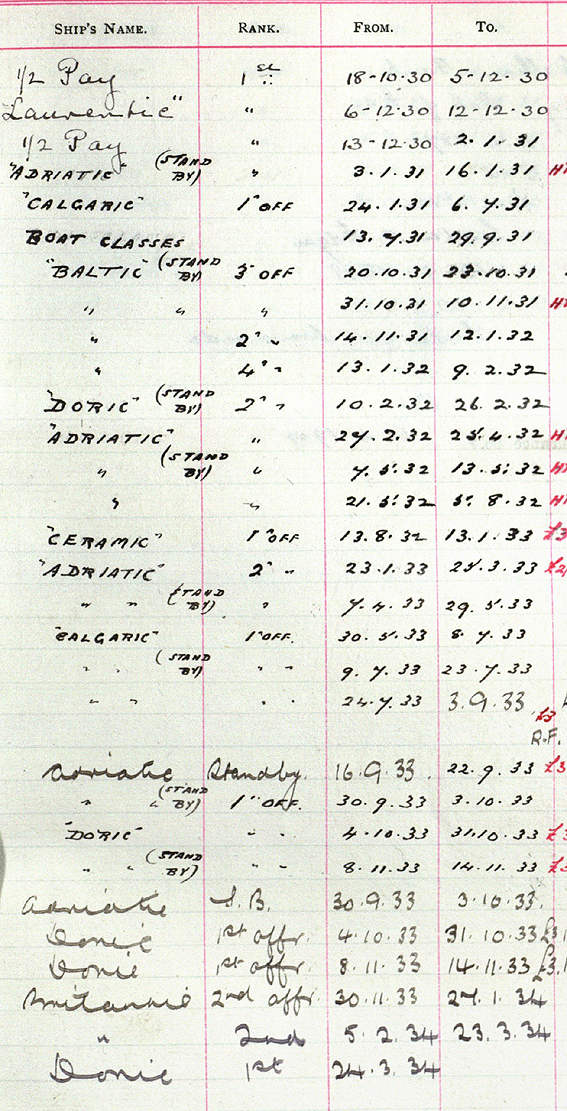 SHIP'S NAME. RANK. FROM. TO.
1/2 Pay 1st 18-10-30 5-12-30
Laurentic" " 6-12-30 12-12-30
1/2 Pay " 13-12-30 2.1.31
"ADRIATIC" (STAND BY) " 3.1.31 16.1.31
"CALGARIC" 1" OFF 24.1.31 6.7.31
BOAT CLASSES 13.7.31 29.9.31
"BALTIC" (STAND BY) 3" OFF 20.10.31 23.10.31
" " " 31.10.31 10.11.31
" 2" " 14.11.31 12.1.32
" 4" " 13.1.32 9.2.32
"DORIC" (STAND BY) 2" " 10.2.32 26.2.32
"ADRIATIC" " 27.2.32 25.4.32
" (STAND BY) " 7.5.32 13.5.32
" " 21.5.32 5.8.32
"CERAMIC" 1" OFF 13.8.32 13.1.33 £3
"ADRIATIC" 2" " 23.1.33 25.3.33 £2
" " (STAND BY) " 7.4.33 29.5.33
"CALGARIC" 1" OFF. 30.5.33 8.7.33
" " (STAND BY) " " 9.7.33 23.7.33
" " " " 24.7.33 3.9.33 £3
R.F.
Adriatic Standby. 16.9.33 22.9.33 £3
" " (STAND BY) 1" OFF. 30.9.33 3.10.33
"DORIC" " " 4.10.33 31.10.33 £3
" " (STAND BY) " " 8.11.33 14.11.33 £3
Adriatic S.B. 30.9.33 3.10.33.
Doric 1st offr. 4.10.33 31.10.33 £3.1
Doric 1st offr. 8.11.33 14.11.33 £3.1
Britannic 2nd offr. 30.11.33 27.1.34
" 2nd 5.2.34 23.3.34
Doric 1st 24.3.34